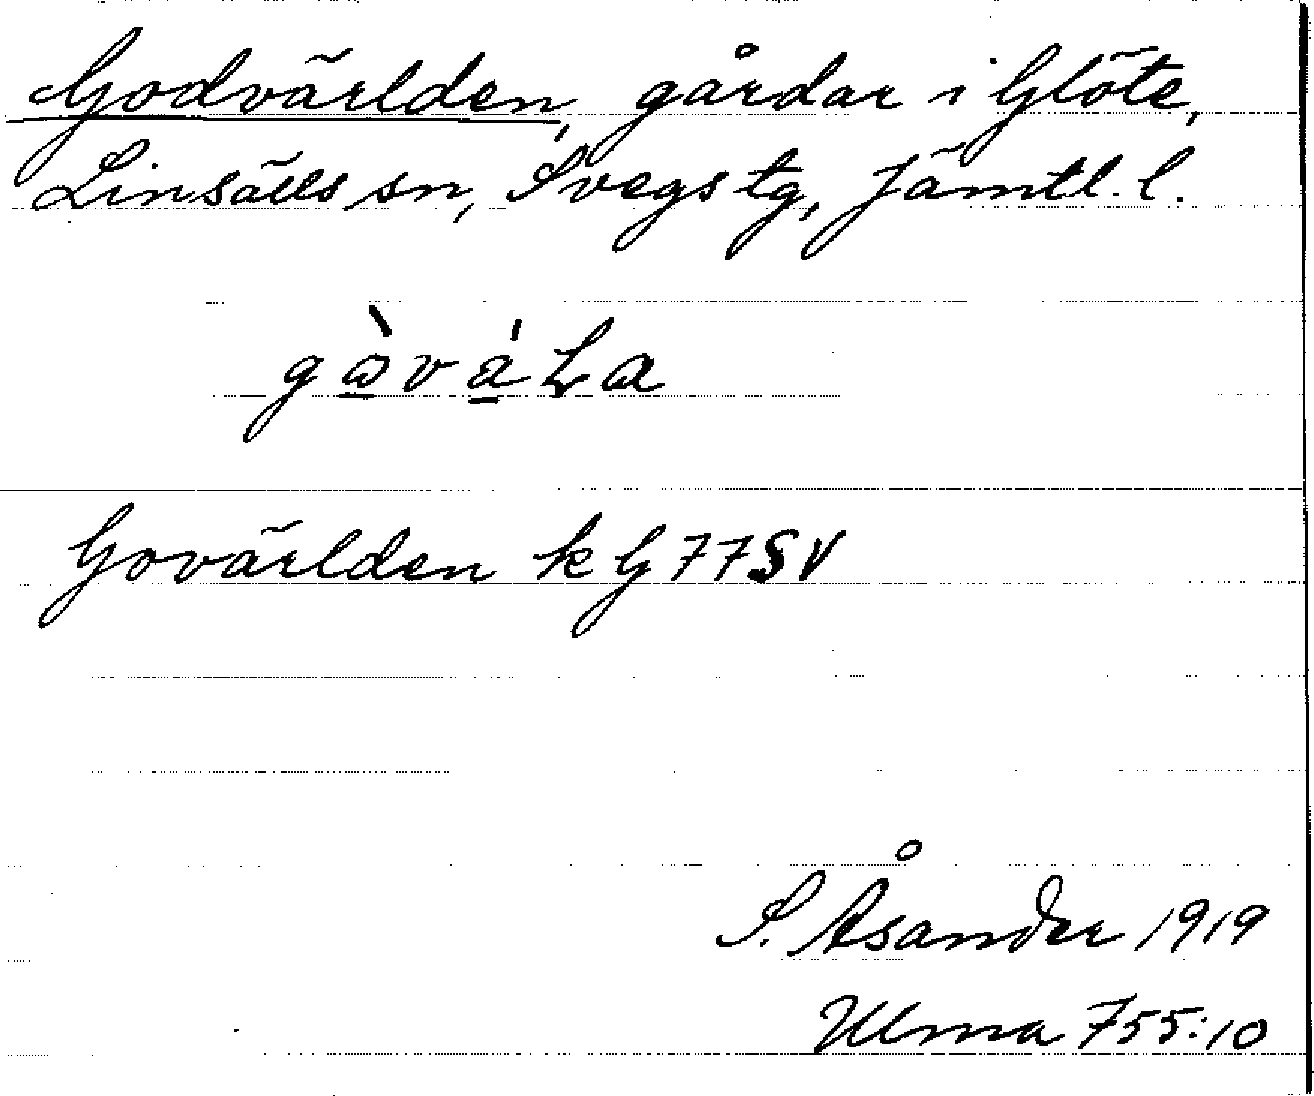 Godvärlden, gårdar i Glöte,
Linsälls sn, Svegs tg, Jämtl. l.
gὼváLa
Govärlden k G77SV
S. Åsander 1919
Ulma 755:10